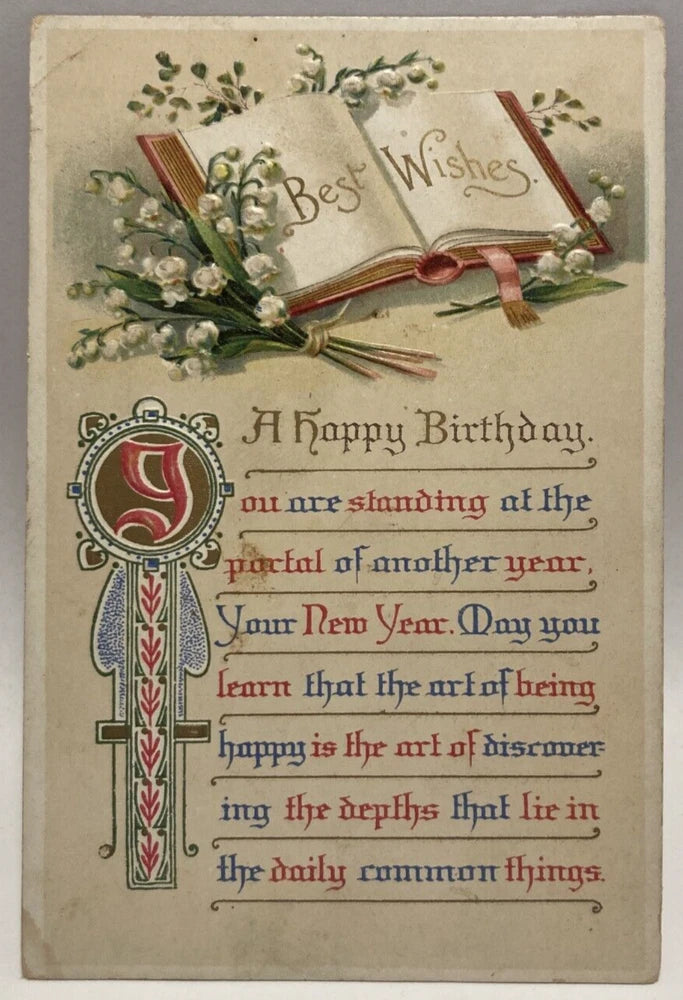 Best Wishes.
A Happy Birthday.
You are standing at the
portal of another year,
Your New Year. May you
learn that the art of being
happy is the art of discover=
ing the depths that lie in
the daily common things.